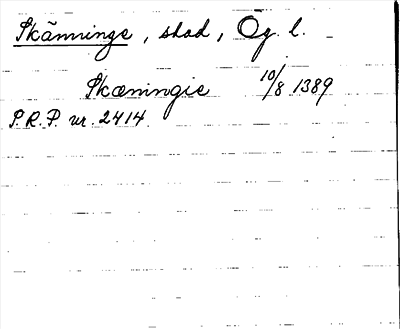 Skänninge, stad, Ög. l.
Skæningie 10/8 1389
P.R.P. nr. 2414.